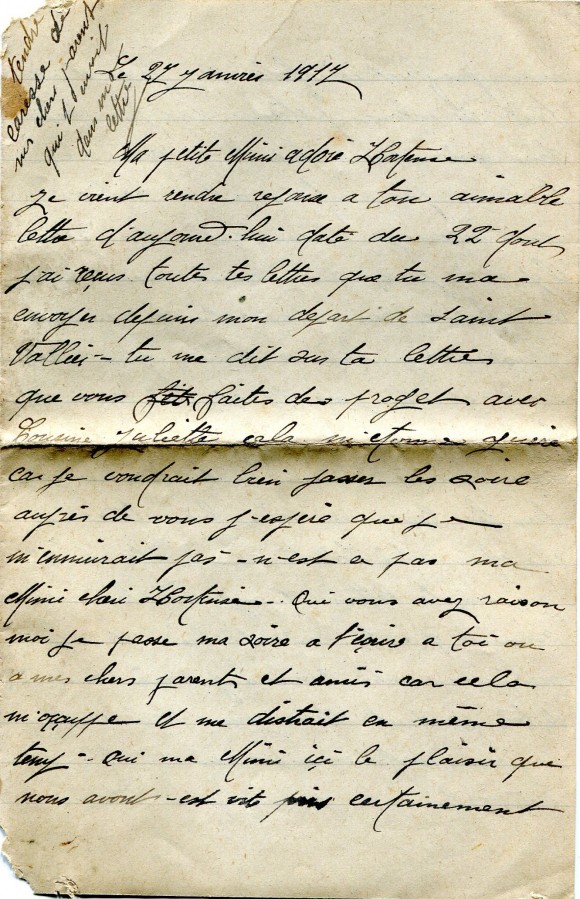 tendre
caresse de
mes chers parent
qui t'
dans m
lettre
Le 27 janvies 1917
Ma petite Mimi adoré Hortense
je vient rendre reponse a ton aimable
lettre d'aujourd-hui daté du 22 dont
j'ai reçus toutes tes lettres que tu ma
envoyer depuis mon depart de saint
Vallier - tu me dit sur ta lettres
que vous fit faites des projet avec
Cousine Juliette cela m'etonne guère
car je voudrait bien passer les soire
auprès de vous j'espére que je
m'ennuirait pas - n'est ce pas ma
Mimi cheri Hortense - Oui vous avez raison
moi je passe ma soire a t'éçrire a toi ou
a mes chers parents et amis car cela
m'oççuppe et me distrait en même
temp - Oui ma Mimi içi le plaisir que
nous avont - est vite pris certainement